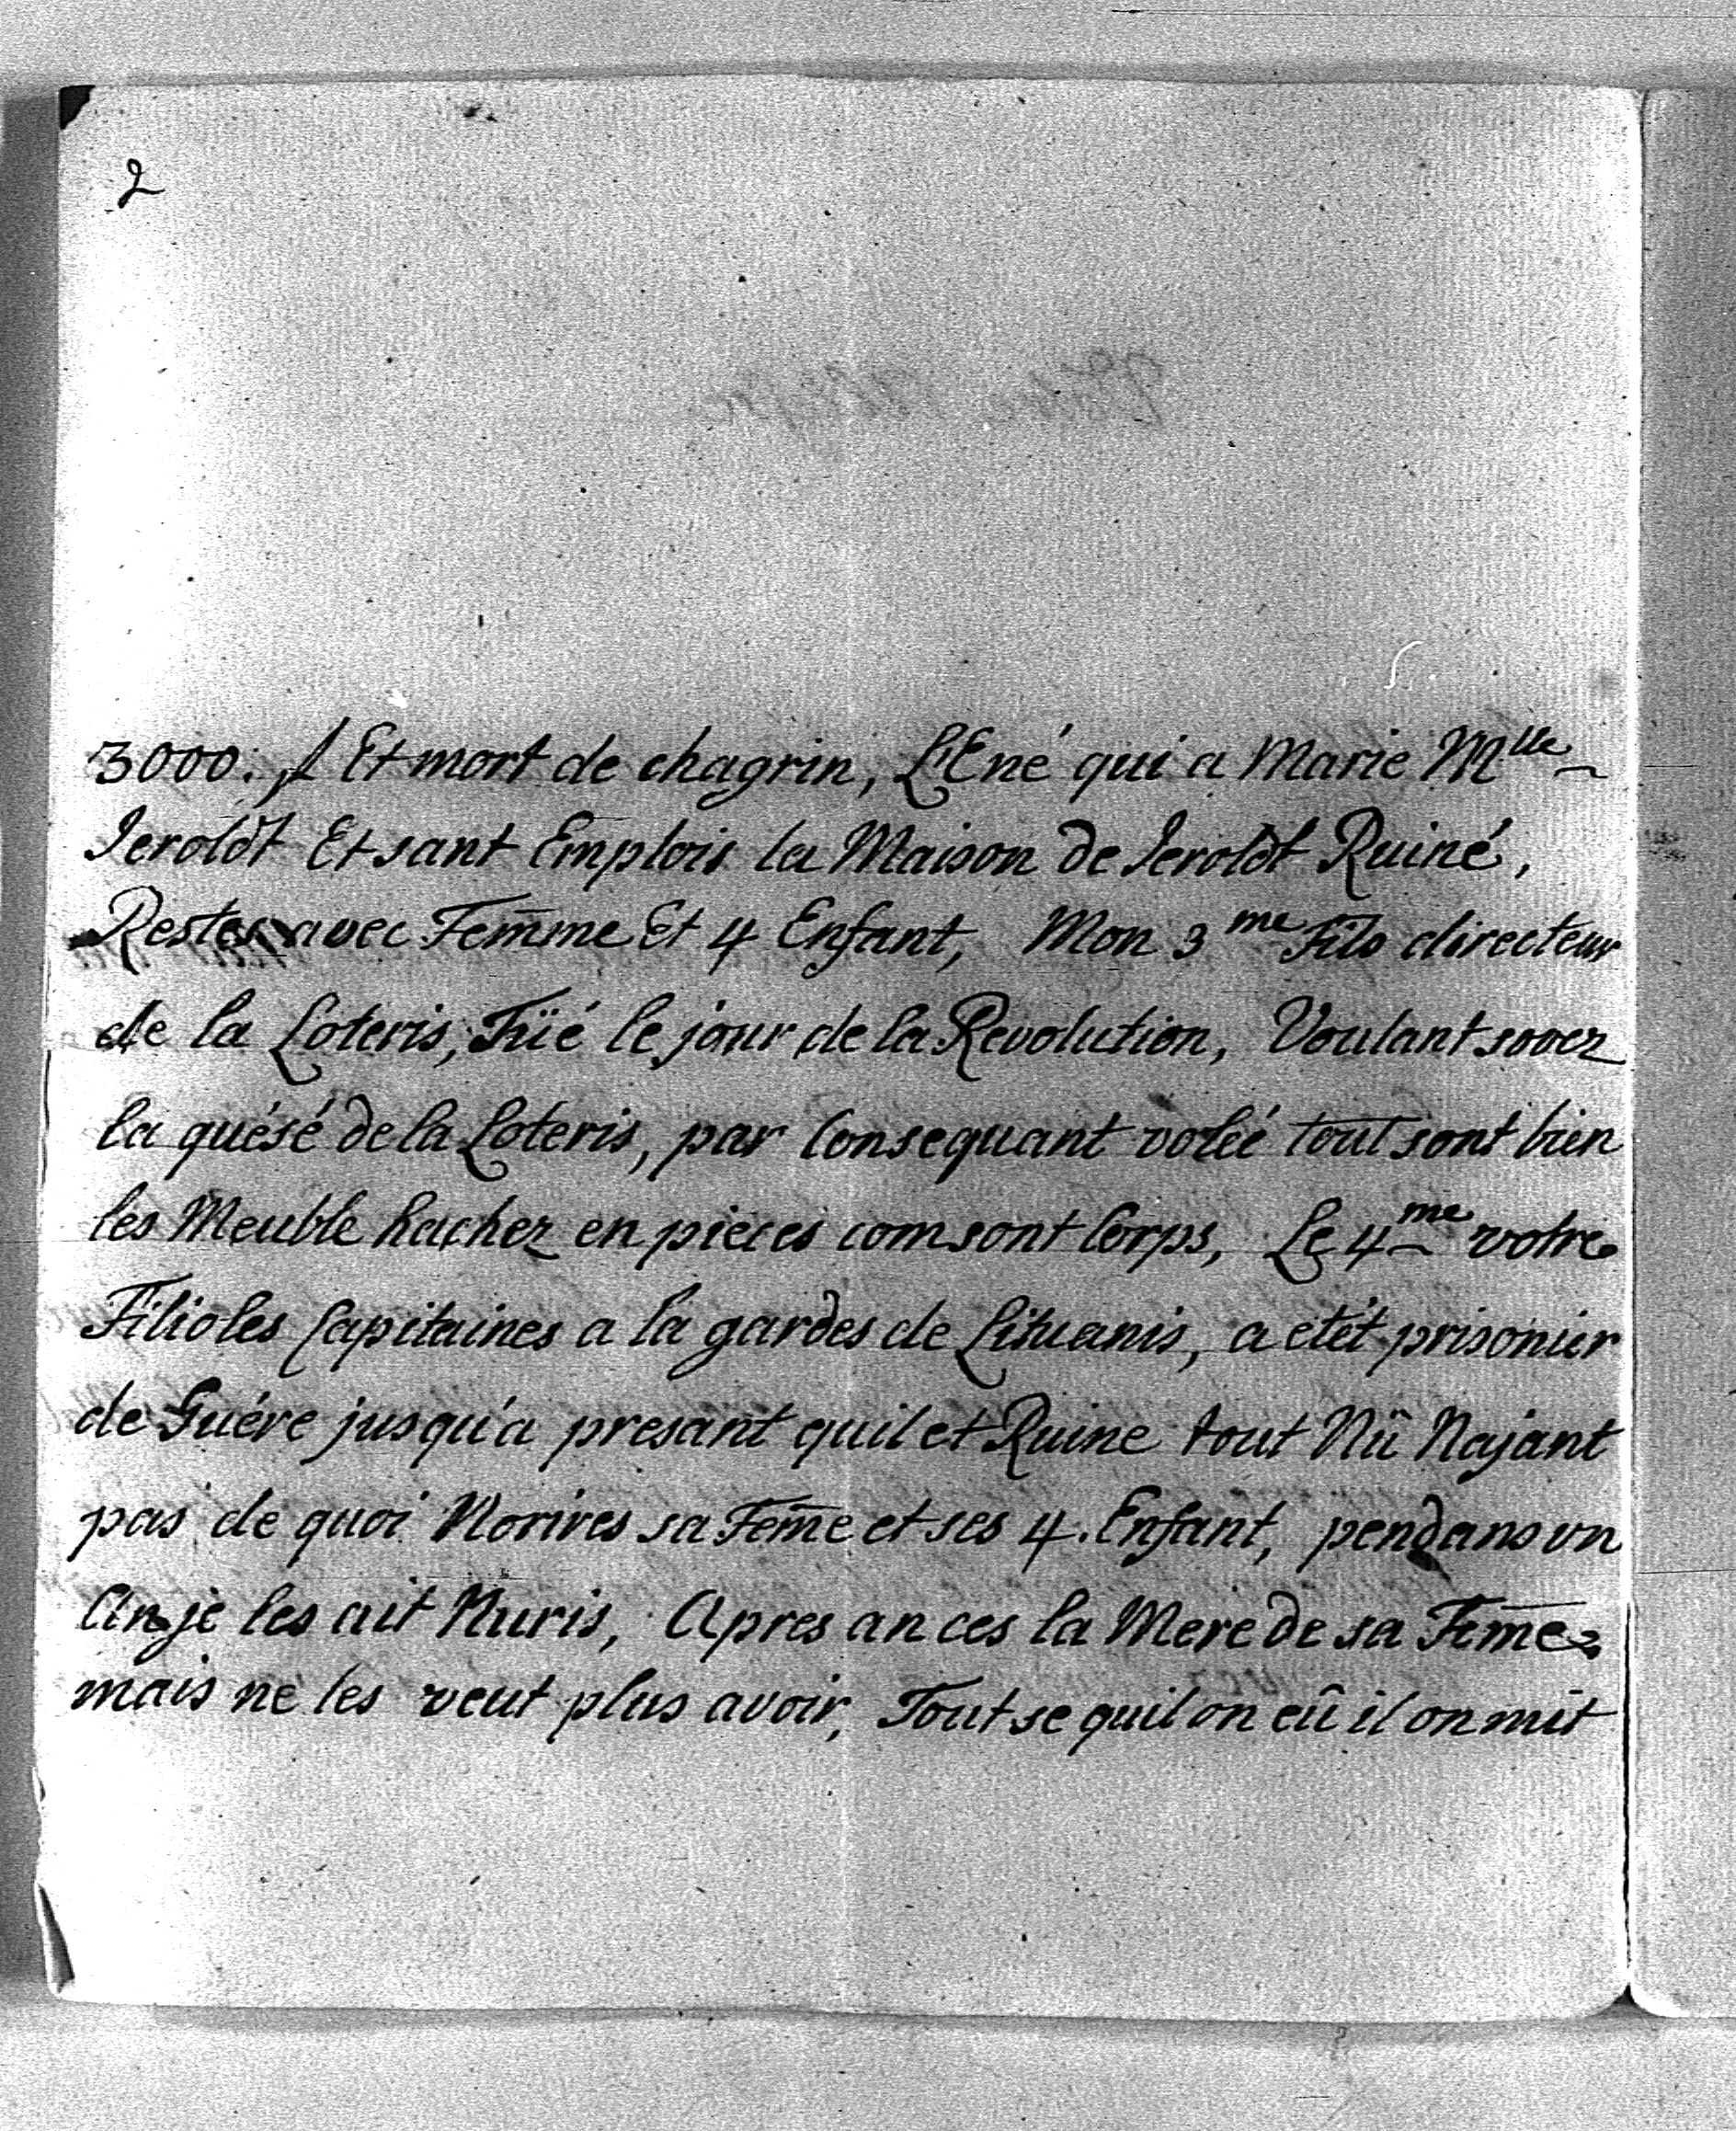 2
3000: f Et mort de chagrin, L'Ené qui a Marie Mlle
Jeroldt Et sant Emplois la Maison de Jeroldt Ruiné,
Restes avec Femme Et 4 Enfant, Mon 3me Fils directeur
de la Loteris, Tüé le jour de la Revolution, Voulant sover
la quésé de la Loteris, par Consequant voléé tout sont bien
les Meuble hacher en pieces com sont Corps, Le 4me votre
Filioles Capitaines a la gardes de Lituanis, a etét prisonier
de Guére jusqu'a presant quil et Ruine tout Nü Najant
pas de quoi Norires sa Feme et ses 4. Enfant, pendans un
An je les ait Nuris, Apres an ces la Mere de sa Feme
mais ne les veut plus avoir, Tout se quil on eû il on mit